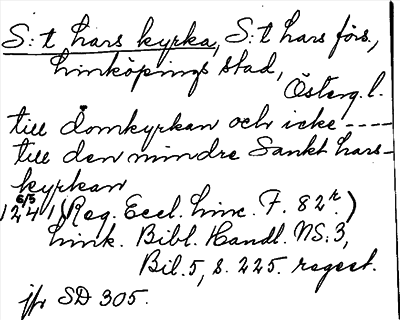 S:t Lars kyrka, S:t Lars förs.,
Linköpings stad,
Österg.l.
till domkyrkan och icke ----
till den mindre Sankt Lars-
kyrkan
6/5
1241 (Reg. Eccl. Linc. F. 82r.)
Link. Bibl. Handl. NS:3,
Bil. 5, s. 225. regest.
jfr SD 305.